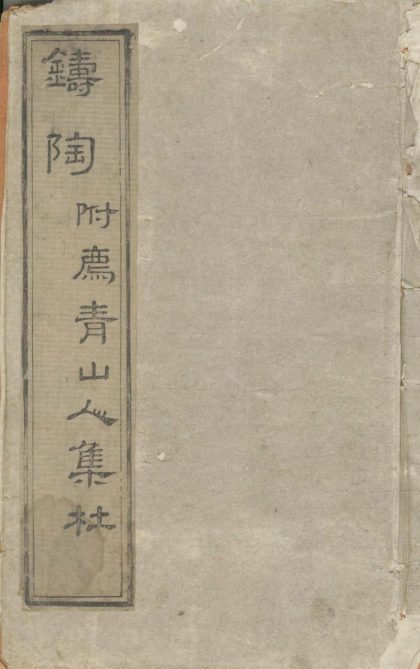 鑄陶
附廌青山人集杜